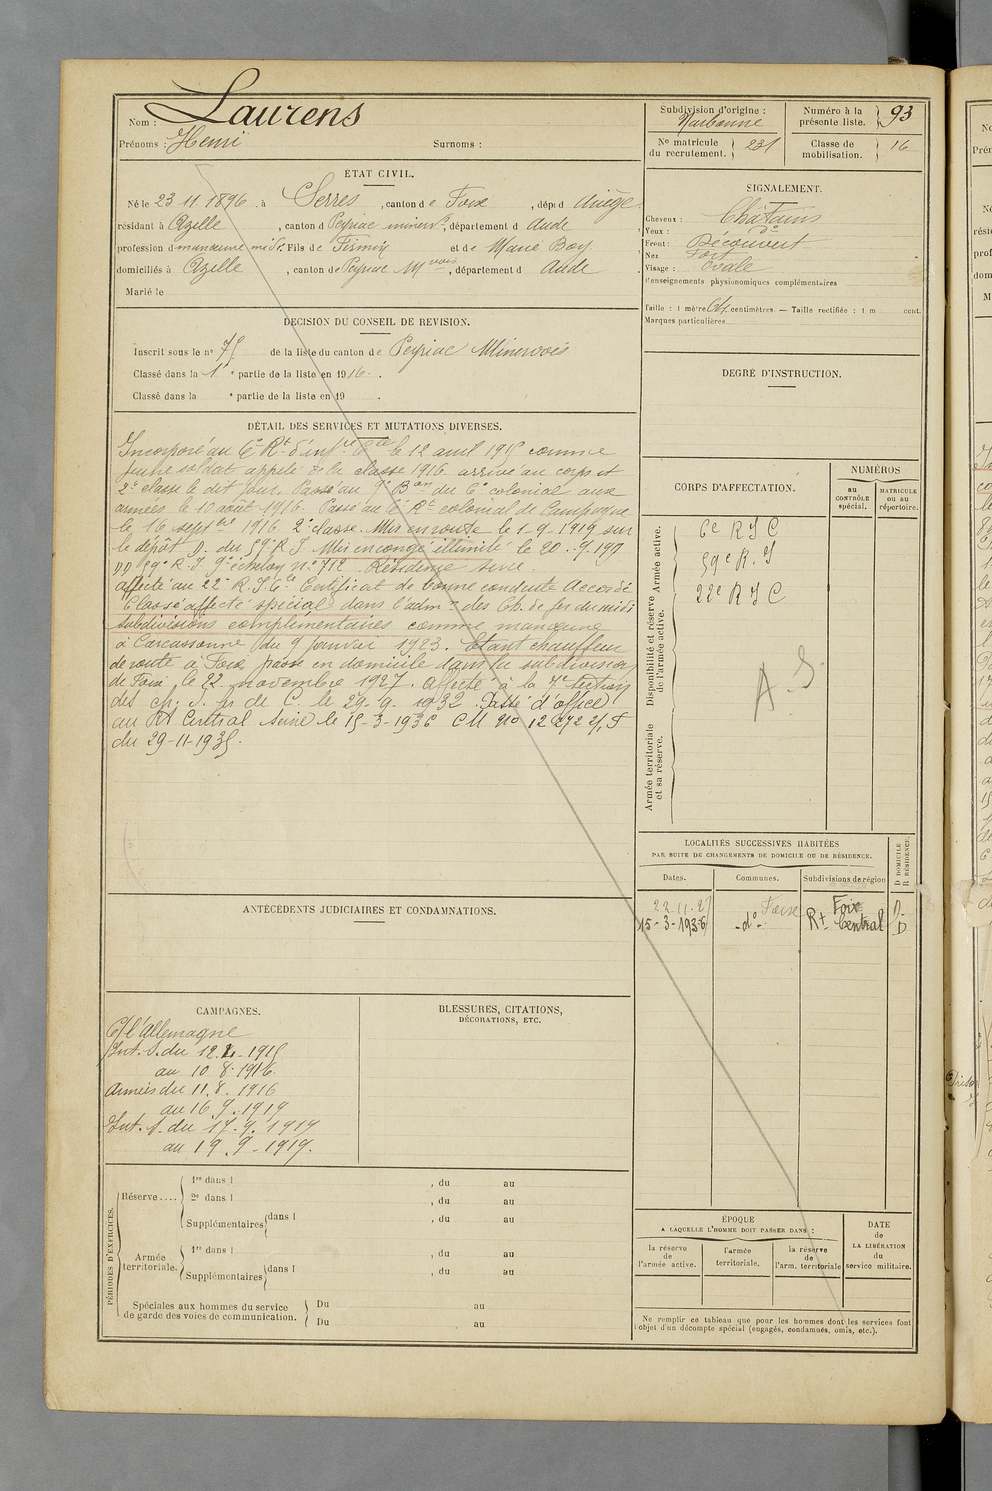 Nom : Laurens
Prénoms : Henri Surnoms :
Subdivision d'origine :
Narbonne
Numéro à la
présente liste. 93
No matricule
du recrutement. 231
Classe de
mobilisation. 16
ETAT CIVIL.
Né le 23 11 1896 à Serres, canton de Foix, dépt d Ariège
résidant à Azille, canton d Peyriac minervs, département d Aude
profession d manœuvre Fils de Firmin et de Marie Boy
domiciliés à Azille, canton de Peyriac Mvois, département d Aude
Marié le
DÉCISION DU CONSEIL DE RÉVISION.
Inscrit sous le n° 75 de la liste du canton de Peyriac Minervois
Classé dans la 1e partie de la liste en 1916.
Classé dans la e partie de la liste en 19 .
DÉTAIL DES SERVICES ET MUTATIONS DIVERSES.
Incorporé au 6e Rt d'infie Cale le 12 avril 1915 comme
jeune soldat appelé de la classe 1916 arrivé au corps et
2e classe le dit jour. Passé au 9e Bon du 6e colonial aux
armées le 10 août 1916. Passé au 6e Rt colonial de Campagne
le 16 septbre 1916 2e classe. Mis en route le 1-9-1919 sur
le dépôt D. du 59e R I Mis en congé illimité le 20-9-1919
DD 59e R.I 9e échelon n° 712 Résidence
affecté au 22e R.I.Cle Certificat de bonne conduite Accordé
Classé affecté spécial dans l'admon des Ch. de fer du midi
subdivisions complémentaires comme manœuvre
à Carcassonne du 9 Janvier 1923. Etant chauffeur
de route à Foix passe en domicile dans la subdivision
de Foix, le 22 novembre 1927. Affecté à la 7e section
des ch. f. de C. le 29-9-1932. Passé d'office
au Rt Central Seine le 15-3-1936 CM no 12 272 2/1 T
du 29-11-1935.
ANTÉCÉDENTS JUDICIAIRES ET CONDAMNATIONS.
CAMPAGNES.
C/ l'Allemagne
Int. S. du 12.4-1915
au 10 8-1916.
Armées du 11.8.1916
au 16.9.1919
Int. S. du 17.9.1919
au 19.9-1919.
BLESSURES, CITATIONS,
DÉCORATIONS, ETC.
PÉRIODES D'EXERCICES.
Réserve....
1re dans l , du au
2e dans l , du au
Supplémentaires dans l , du au
Armée
territoriale.
1re dans l , du au
Supplémentaires dans l , du au
Spéciales aux hommes du service
de garde des voies de communication.
Du au
Du au
SIGNALEMENT.
Cheveux : Châtains
Yeux : do
Front : Découvert
Nez Fort
Visage : ovale
Renseignements physionomiques complémentaires
Taille : 1 mètre 64 centimètres. — Taille rectifiée : 1 m cent.
Marques particulières
DEGRÉ D'INSTRUCTION.
CORPS D'AFFECTATION.
NUMÉROS
au
CONTRÔLE
spécial.
MATRICULE
ou au
répertoire.
Armée active.
6e R I C
59e R. I
22e R I C
Disponibilité et réserve
de l'armée active.
A. S.
Armée territoriale
et sa réserve.
LOCALITÉS SUCCESSIVES HABITÉES
PAR SUITE DE CHANGEMENTS DE DOMICILE OU DE RÉSIDENCE.
Dates. Communes. Subdivisions de région
D DOMICILE
R RÉSIDENCE.
22.11.27 Foix Foix D-
15-3-1936 -do- Rt Central D
ÉPOQUE
A LAQUELLE L'HOMME DOIT PASSER DANS :
la réserve
de
l'armée active.
l'armée
territoriale.
la réserve
de
l'arm. territoriale
DATE
de
LA LIBÉRATION
du
service militaire.
Ne remplir ce tableau que pour les hommes dont les services font
l'objet d'un décompte spécial (engagés, condamnés, omis, etc.).